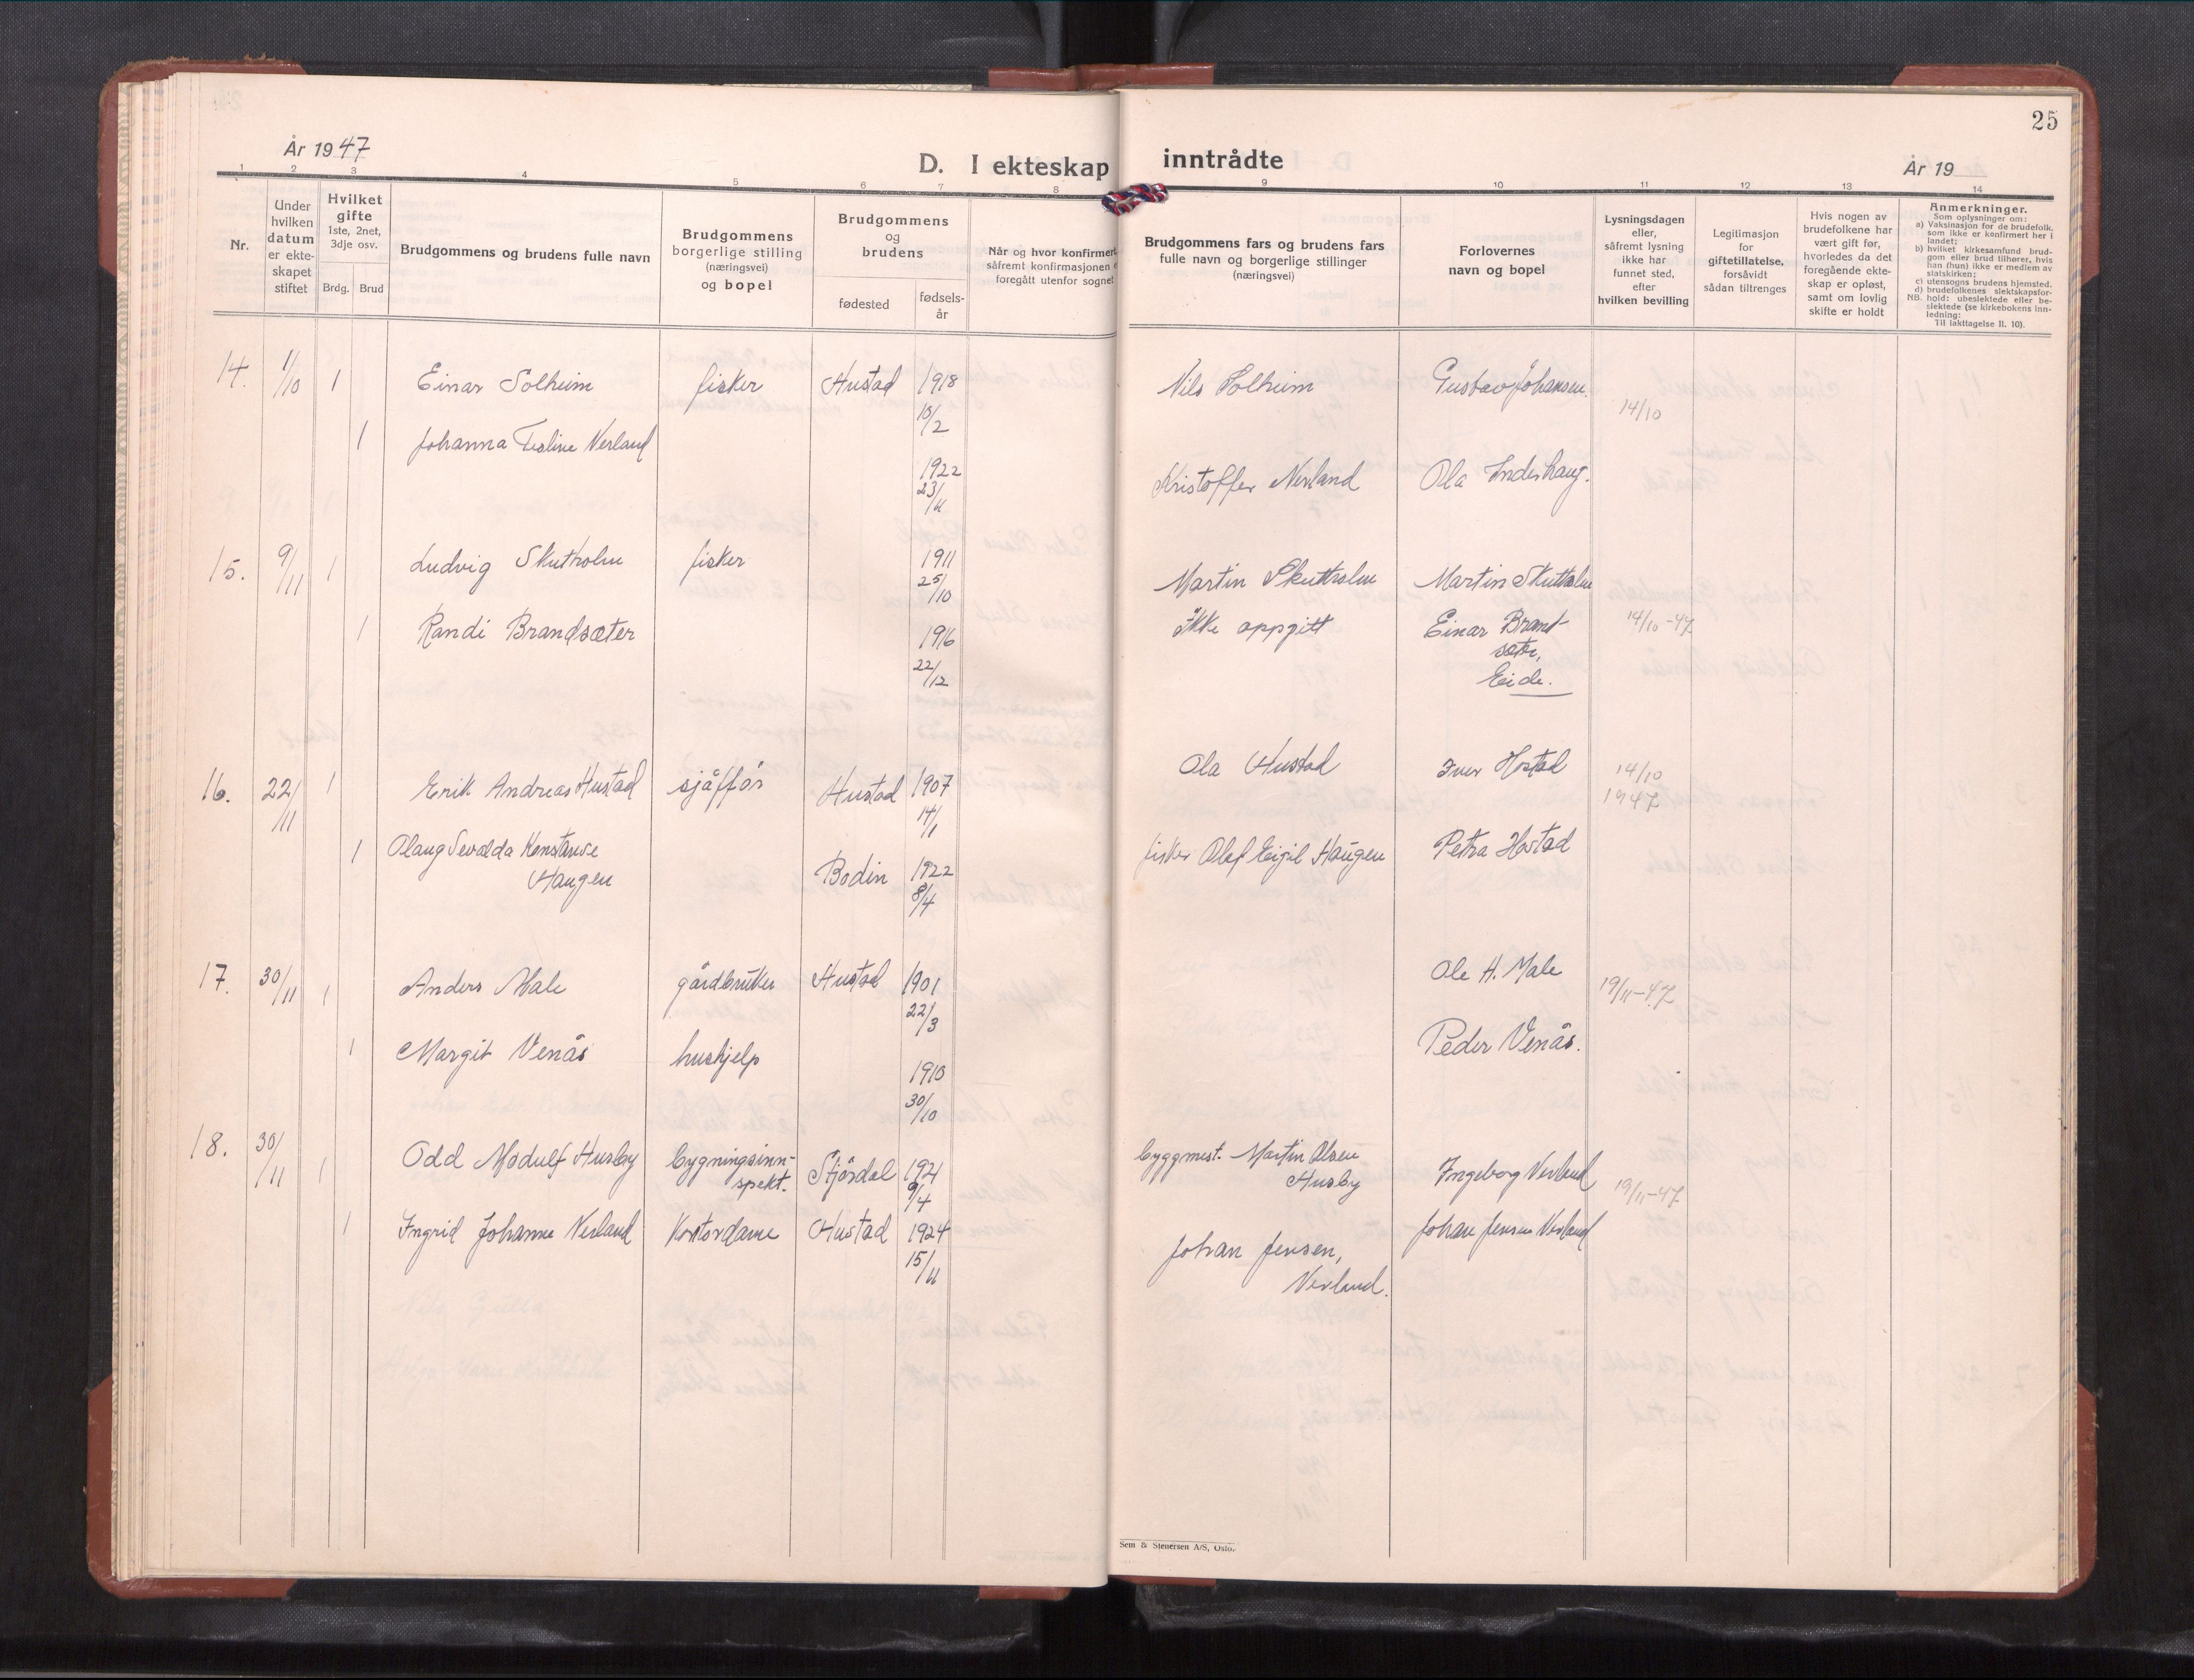 25
År 1947
D. I ekteskap inntrådte
År 19
1 2 3 4 5 6 7 8 9 10 11 12 13 14
Nr.
Under
hvilken
datum
er ekte-
skapet
stiftet
Hvilket
gifte
1ste, 2net,
3dje osv.
Brdg. Brud
Brudgommens og brudens fulle navn
Brudgommens
borgerlige stilling
(næringsvei)
og bopel
Brudgommens
og
brudens
fødested
fødsels-
år
Når og hvor konfirmert
såfremt konfirmasjonen
foregått utenfor sognet
Brudgommens fars og brudens fars
fulle navn og borgerlige stillinger
(næringsvei)
Forlovernes
navn og bopel
Lysningsdagen
eller,
såfremt lysning
ikke har
funnet sted,
efter
hvilken bevilling
Legitimasjon
for
giftetillatelse,
forsåvidt
sådan tiltrenges
Hvis nogen av
brudefolkene har
vært gift før,
hvorledes da det
foregående ekte-
skap er opløst,
samt om lovlig
skifte er holdt
Anmerkninger.
Som oplysninger om:
a) Vaksinasjon for de brudefolk,
som ikke er konfirmert her i
landet;
b) hvilket kirkesamfund brud-
gom eller brud tilhører, hvis
han (hun) ikke er medlem av
statskirken;
c) utensogns brudens hjemsted.
d) brudefolkenes slektskapsfor-
NB. hold: ubeslektede eller be-
slektede (se kirkebokens inn-
ledning:
Til iakttagelse II. 10).
14. 1/10 1 Einar Solheim fisker Hustad 1918 Nils Solheim Gustav Johansen.
10/2 14/10
1 Johanna Nerland
1922 Kristoffer Nerland Ola Inderhaug.
23/11
15. 9/11 1 Ludvig Skutholm fisker 1911 Martin Skutholm Martin Skutholm
25/10
1 Randi Brandsæter 1916 Ikke oppgitt Einar Brand- 14/10-47
22/12 sæter,
Eide.
16. 22/11 1 Erik Andreas Hustad sjåffør Hustad 1907 Ola Hustad Iver Hostad 14/10
14/1 1947
1 Olaug Sevalda Konstanse
Haugen Bodin 1922 fisker Olaf Eigil Haugen Petra Hostad
8/4
17. 30/11 1 Anders Male gårdbruker Hustad 1901 Ole H. Male 19/11-47
22/3
1 Margit Venås hushjelp 1910 Peder Venås.
30/10
18. 30/11 1 Odd Modulf Husby bygningsinn- Stjørdal 1921 byggmest. Martin Olsen Ingeborg Nerland 19/11-47
spekt. 9/4 Husby
1 Ingrid Johanne Nerland Kontordame Hustad 1924 Johan Jensen, Johan Jensen Nerland
15/11 Nerland.
Sem & Stenersen A/S, Oslo.